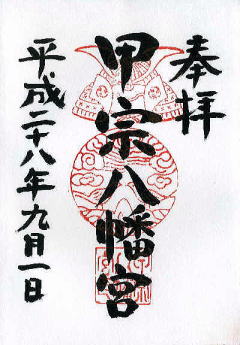 奉拝
甲宗八幡宮
平成二十八年九月一日